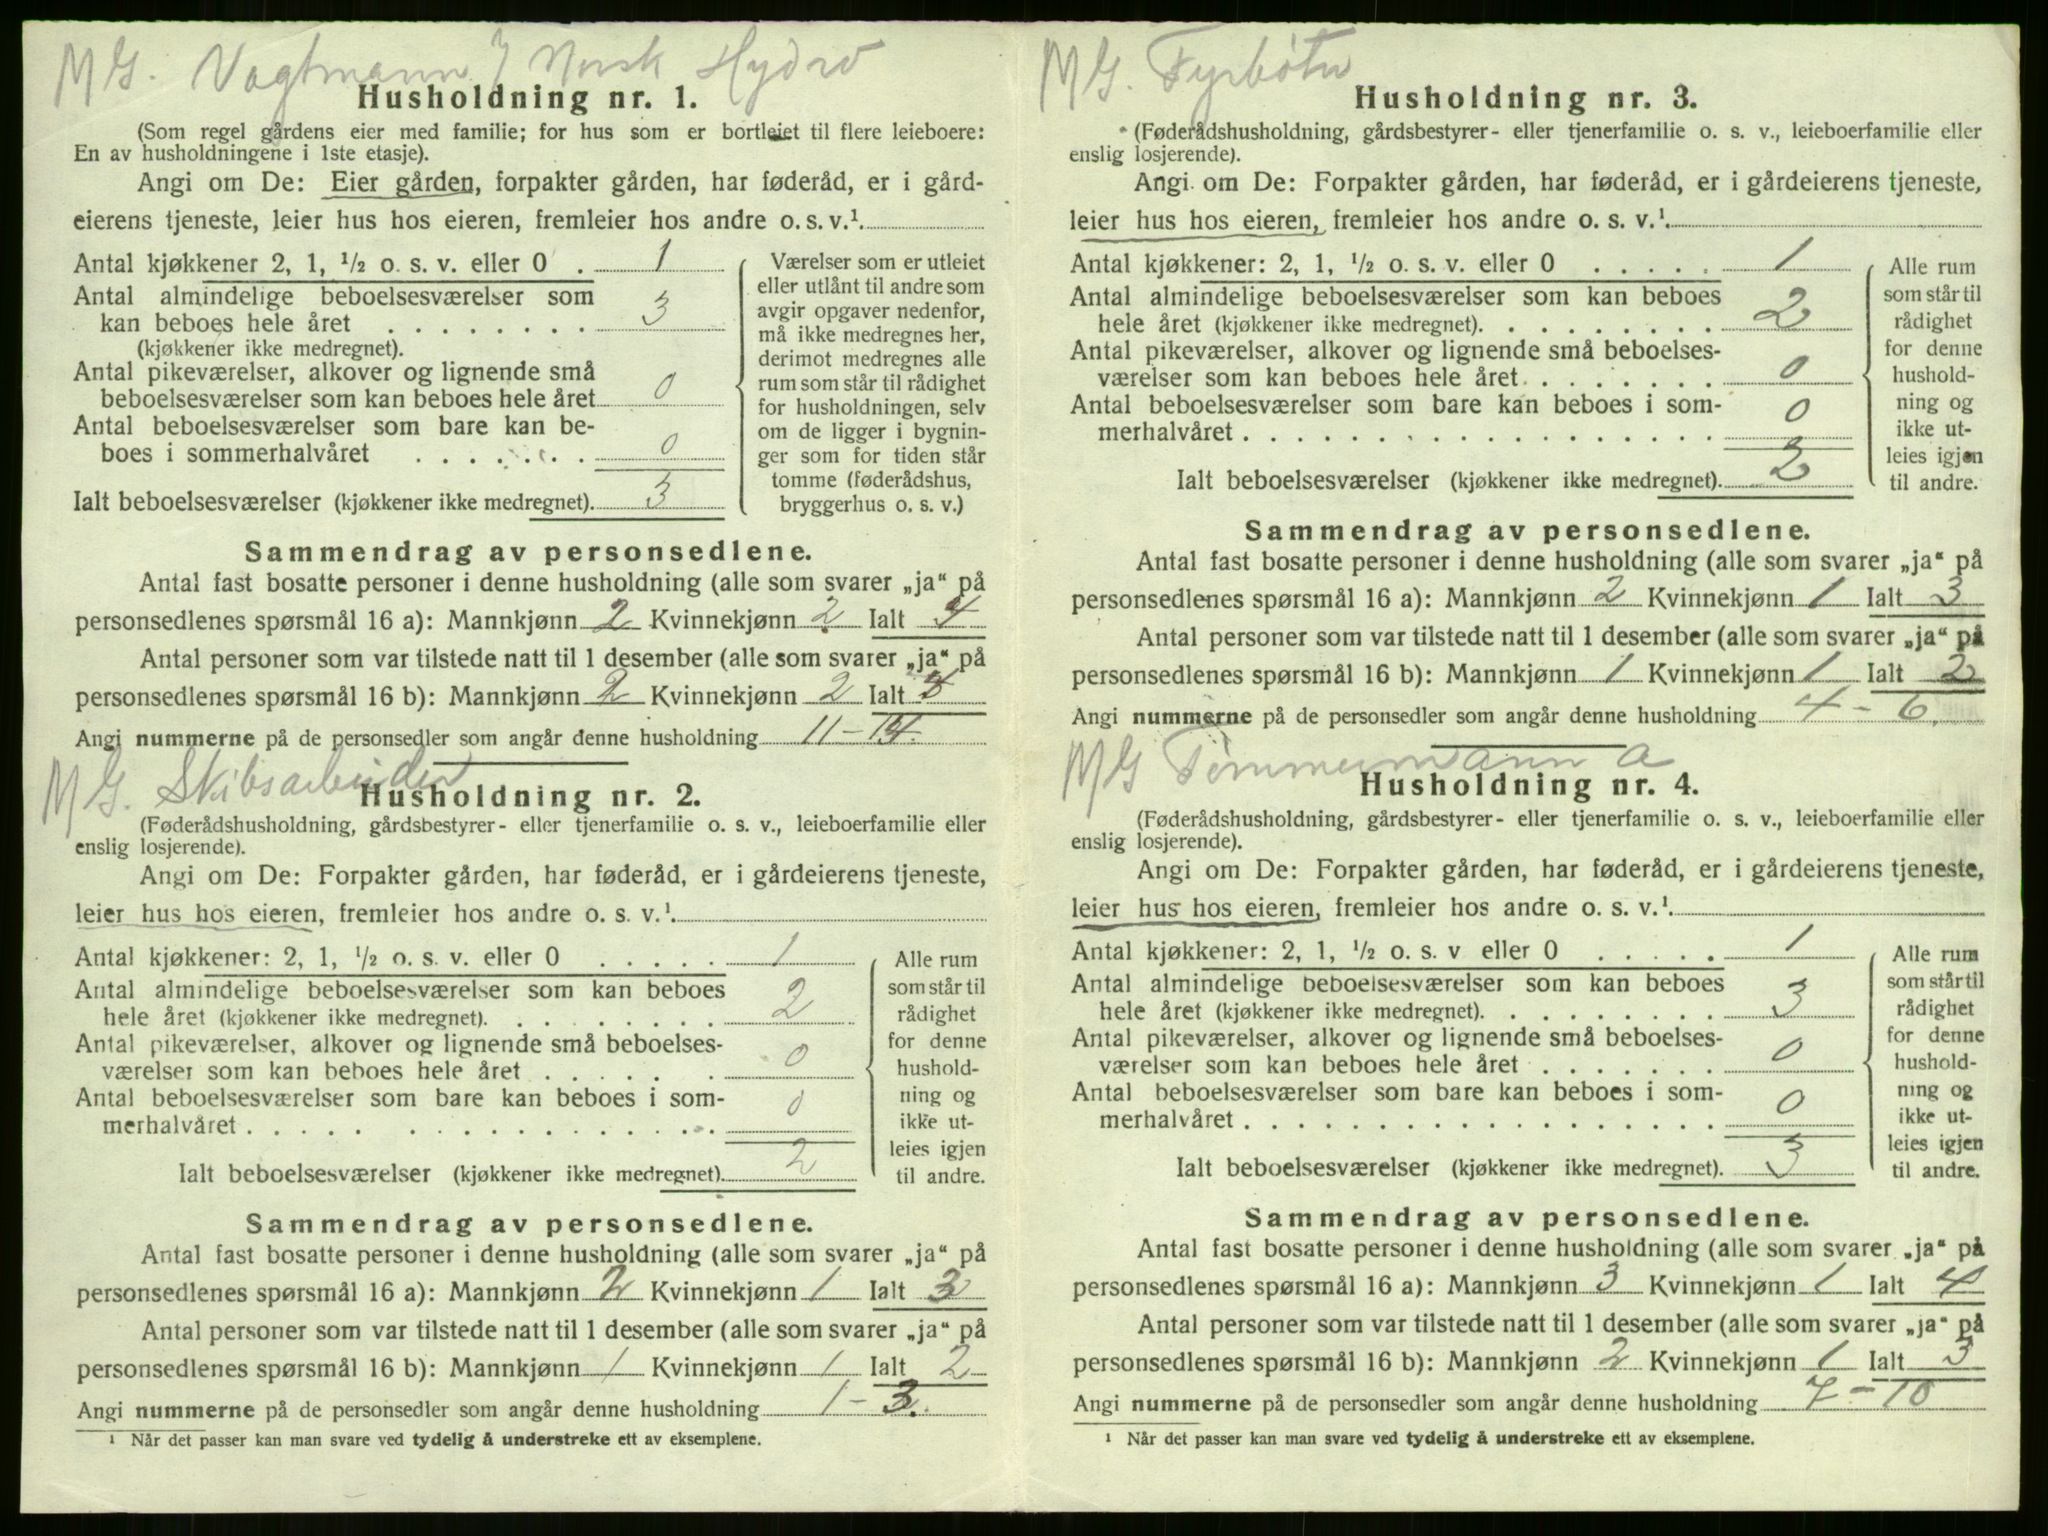 M G. Vagtmann Norsk Hydro
Husholdning nr. 1.
(Som regel gårdens eier med familie; for hus som er bortleiet til flere leieboere:
En av husholdningene i 1ste etasje).
Angi om De: Eier gården, forpakter gården, har føderåd, er i gård-
eierens tjeneste, leier hus hos eieren, fremleier hos andre o. s. v.¹
Antal kjøkkener 2, 1, ½ o. s. v. eller 0 . 1
Antal almindelige beboelsesværelser som
kan beboes hele året . . . . . . . . 3
(kjøkkener ikke medregnet).
Antal pikeværelser, alkover og lignende små
beboelsesværelser som kan beboes hele året 0
Antal beboelsesværelser som bare kan be-
boes i sommerhalvåret . . . . . . . 0
Ialt beboelsesværelser (kjøkkener ikke medregnet). 3
Værelser som er utleiet
eller utlånt til andre som
avgir opgaver nedenfor,
må ikke medregnes her,
derimot medregnes alle
rum som står til rådighet
for husholdningen, selv
om de ligger i bygnin-
ger som for tiden står
tomme (føderådshus,
bryggerhus o. s. v.)
Sammendrag av personsedlene.
Antal fast bosatte personer i denne husholdning (alle som svarer „ja“ på
personsedlenes spørsmål 16 a): Mannkjønn 2 Kvinnekjønn 2 Ialt 4
Antal personer som var tilstede natt til 1 desember (alle som svarer „ja“ på
personsedlenes spørsmål 16 b): Mannkjønn 2 Kvinnekjønn 2 Ialt 4
Angi nummerne på de personsedler som angår denne husholdning 11-14.
M G. Skibsarbeider
Husholdning nr. 2.
(Føderådshusholdning, gårdsbestyrer- eller tjenerfamilie o. s. v., leieboerfamilie eller
enslig losjerende).
Angi om De: Forpakter gården, har føderåd, er i gårdeierens tjeneste,
leier hus hos eieren, fremleier hos andre o. s. v.¹
Antal kjøkkener: 2, 1, ½ o. s. v. eller 0 . . . . . 1
Antal almindelige beboelsesværelser som kan beboes
hele året (kjøkkener ikke medregnet). . . . . . . . 2
Antal pikeværelser, alkover og lignende små beboelses-
værelser som kan beboes hele året . . . . . . . 0
Antal beboelsesværelser som bare kan beboes i som-
merhalvåret . . . . . . . . . . . . . . . . . 0
Ialt beboelsesværelser (kjøkkener ikke medregnet). 2
Alle rum
som står til
rådighet
for denne
hushold-
ning og
ikke ut-
leies igjen
til andre.
Sammendrag av personsedlene.
Antal fast bosatte personer i denne husholdning (alle som svarer „ja“ på
personsedlenes spørsmål 16 a): Mannkjønn 2 Kvinnekjønn 1 Ialt 3
Antal personer som var tilstede natt til 1 desember (alle som svarer „ja“ på
personsedlenes spørsmål 16 b): Mannkjønn 1 Kvinnekjønn 1 Ialt 2
Angi nummerne på de personsedler som angår denne husholdning 1-3.
¹ Når det passer kan man svare ved tydelig å understreke ett av eksemplene.
M G. Fyrbøter
Husholdning nr. 3.
(Føderådshusholdning, gårdsbestyrer- eller tjenerfamilie o. s. v., leieboerfamilie eller
enslig losjerende).
Angi om De: Forpakter gården, har føderåd, er i gårdeierens tjeneste,
leier hus hos eieren, fremleier hos andre o. s. v.¹
Antal kjøkkener: 2, 1, ½ o. s. v. eller 0 . . . . . 1
Antal almindelige beboelsesværelser som kan beboes
hele året (kjøkkener ikke medregnet). . . . . . . . 2
Antal pikeværelser, alkover og lignende små beboelses-
værelser som kan beboes hele året . . . . . . . 0
Antal beboelsesværelser som bare kan beboes i som-
merhalvåret . . . . . . . . . . . . . . . . . 0
Ialt beboelsesværelser (kjøkkener ikke medregnet). 2
Alle rum
som står til
rådighet
for denne
hushold-
ning og
ikke ut-
leies igjen
til andre.
Sammendrag av personsedlene.
Antal fast bosatte personer i denne husholdning (alle som svarer „ja“ på
personsedlenes spørsmål 16 a): Mannkjønn 2 Kvinnekjønn 1 Ialt 3
Antal personer som var tilstede natt til 1 desember (alle som svarer „ja“ på
personsedlenes spørsmål 16 b): Mannkjønn 1 Kvinnekjønn 1 Ialt 2
Angi nummerne på de personsedler som angår denne husholdning 4-6.
M G Tømmermann a
Husholdning nr. 4.
(Føderådshusholdning, gårdsbestyrer- eller tjenerfamilie o. s. v., leieboerfamilie eller
enslig losjerende).
Angi om De: Forpakter gården, har føderåd, er i gårdeierens tjeneste,
leier hus hos eieren, fremleier hos andre o. s. v.¹
Antal kjøkkener: 2, 1, ½ o. s. v eller 0 . . . . . 1
Antal almindelige beboelsesværelser som kan beboes
hele året (kjøkkener ikke medregnet). . . . . . . . 3
Antal pikeværelser, alkover og lignende små beboelses-
værelser som kan beboes hele året . . . . . . . 0
Antal beboelsesværelser som bare kan beboes i som-
merhalvåret . . . . . . . . . . . . . . . . . 0
Ialt beboelsesværelser (kjøkkener ikke medregnet). 3
Alle rum
som står til
rådighet
for denne
hushold-
ning og
ikke ut-
leies igjen
til andre.
Sammendrag av personsedlene.
Antal fast bosatte personer i denne husholdning (alle som svarer „ja“ på
personsedlenes spørsmål 16 a): Mannkjønn 3 Kvinnekjønn 1 Ialt 4
Antal personer som var tilstede natt til 1 desember (alle som svarer „ja“ på
personsedlenes spørsmål 16 b): Mannkjønn 2 Kvinnekjønn 1 Ialt 3
Angi nummerne på de personsedler som angår denne husholdning 7-10
¹ Når det passer kan man svare ved tydelig å understreke ett av eksemplene.